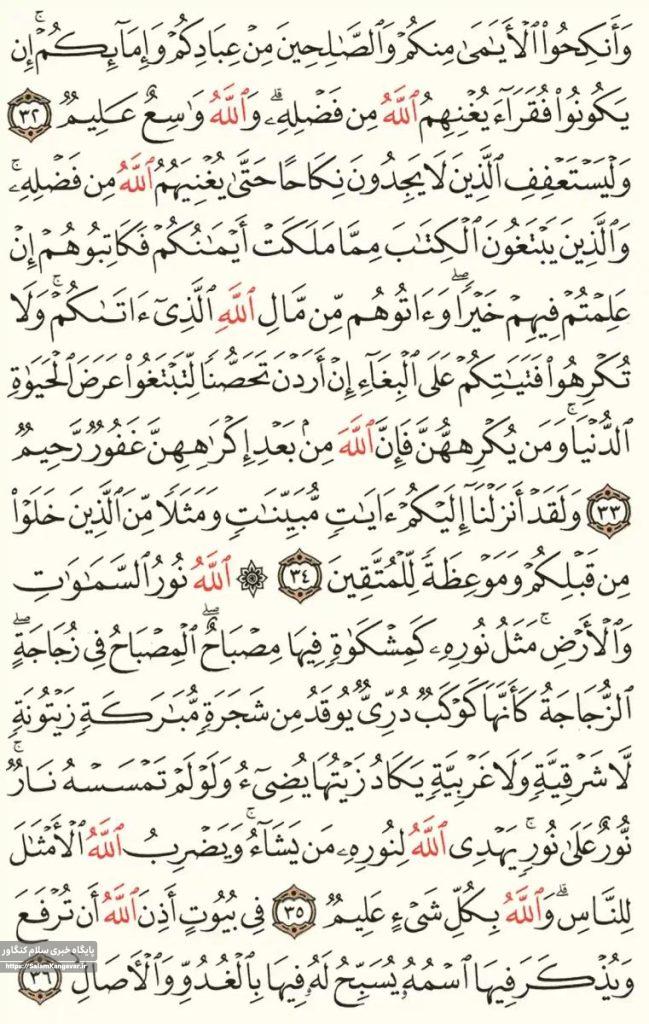 وَأَنكِحُوا۟ ٱلْأَيَـٰمَىٰ مِنكُمْ وَٱلصَّـٰلِحِينَ مِنْ عِبَادِكُمْ وَإِمَآئِكُمْ ۚ إِن
يَكُونُوا۟ فُقَرَآءَ يُغْنِهِمُ ٱللَّهُ مِن فَضْلِهِۦ ۗ وَٱللَّهُ وَٰسِعٌ عَلِيمٌ ٣٢
وَلْيَسْتَعْفِفِ ٱلَّذِينَ لَا يَجِدُونَ نِكَاحًا حَتَّىٰ يُغْنِيَهُمُ ٱللَّهُ مِن فَضْلِهِۦ ۗ
وَٱلَّذِينَ يَبْتَغُونَ ٱلْكِتَـٰبَ مِمَّا مَلَكَتْ أَيْمَـٰنُكُمْ فَكَاتِبُوهُمْ إِنْ
عَلِمْتُمْ فِيهِمْ خَيْرًا ۖ وَءَاتُوهُم مِّن مَّالِ ٱللَّهِ ٱلَّذِىٓ ءَاتَىٰكُمْ ۚ وَلَا
تُكْرِهُوا۟ فَتَيَـٰتِكُمْ عَلَى ٱلْبِغَآءِ إِنْ أَرَدْنَ تَحَصُّنًا لِّتَبْتَغُوا۟ عَرَضَ ٱلْحَيَوٰةِ
ٱلدُّنْيَا ۚ وَمَن يُكْرِههُّنَّ فَإِنَّ ٱللَّهَ مِنۢ بَعْدِ إِكْرَٰهِهِنَّ غَفُورٌ رَّحِيمٌ
٣٣ وَلَقَدْ أَنزَلْنَآ إِلَيْكُمْ ءَايَـٰتٍ مُّبَيِّنَـٰتٍ وَمَثَلًا مِّنَ ٱلَّذِينَ خَلَوْا۟
مِن قَبْلِكُمْ وَمَوْعِظَةً لِّلْمُتَّقِينَ ٣٤ ۞ ٱللَّهُ نُورُ ٱلسَّمَـٰوَٰتِ
وَٱلْأَرْضِ ۚ مَثَلُ نُورِهِۦ كَمِشْكَوٰةٍ فِيهَا مِصْبَاحٌ ۖ ٱلْمِصْبَاحُ فِى زُجَاجَةٍ ۖ
ٱلزُّجَاجَةُ كَأَنَّهَا كَوْكَبٌ دُرِّىٌّ يُوقَدُ مِن شَجَرَةٍ مُّبَـٰرَكَةٍ زَيْتُونَةٍ
لَّا شَرْقِيَّةٍ وَلَا غَرْبِيَّةٍ يَكَادُ زَيْتُهَا يُضِىٓءُ وَلَوْ لَمْ تَمْسَسْهُ نَارٌ ۚ
نُّورٌ عَلَىٰ نُورٍ ۗ يَهْدِى ٱللَّهُ لِنُورِهِۦ مَن يَشَآءُ ۚ وَيَضْرِبُ ٱللَّهُ ٱلْأَمْثَـٰلَ
لِلنَّاسِ ۗ وَٱللَّهُ بِكُلِّ شَىْءٍ عَلِيمٌ ٣٥ فِى بُيُوتٍ أَذِنَ ٱللَّهُ أَن تُرْفَعَ
وَيُذْكَرَ فِيهَا ٱسْمُهُۥ يُسَبِّحُ لَهُۥ فِيهَا بِٱلْغُدُوِّ وَٱلْـَٔاصَالِ ٣٦
پایگاه خبری سلام کنگاور
https://SalamKangavar.ir